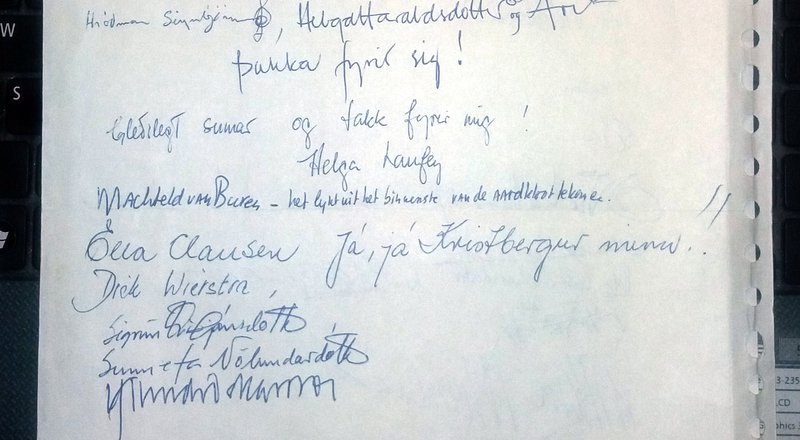 W
S
Helga Haraldsdóttir og
þakka fyrir sig!
Gleðilegt sumar og takk fyrir mig!
Helga Laufey
Machteld van Buren - het lijkt uit het binnenste van de aardkloot te komen.
Clausen Já, já Kristbergur minn..!!
Dick Wierstra,
Sigrún
Sunnefa Völundardóttir
3-235
LCD
phics